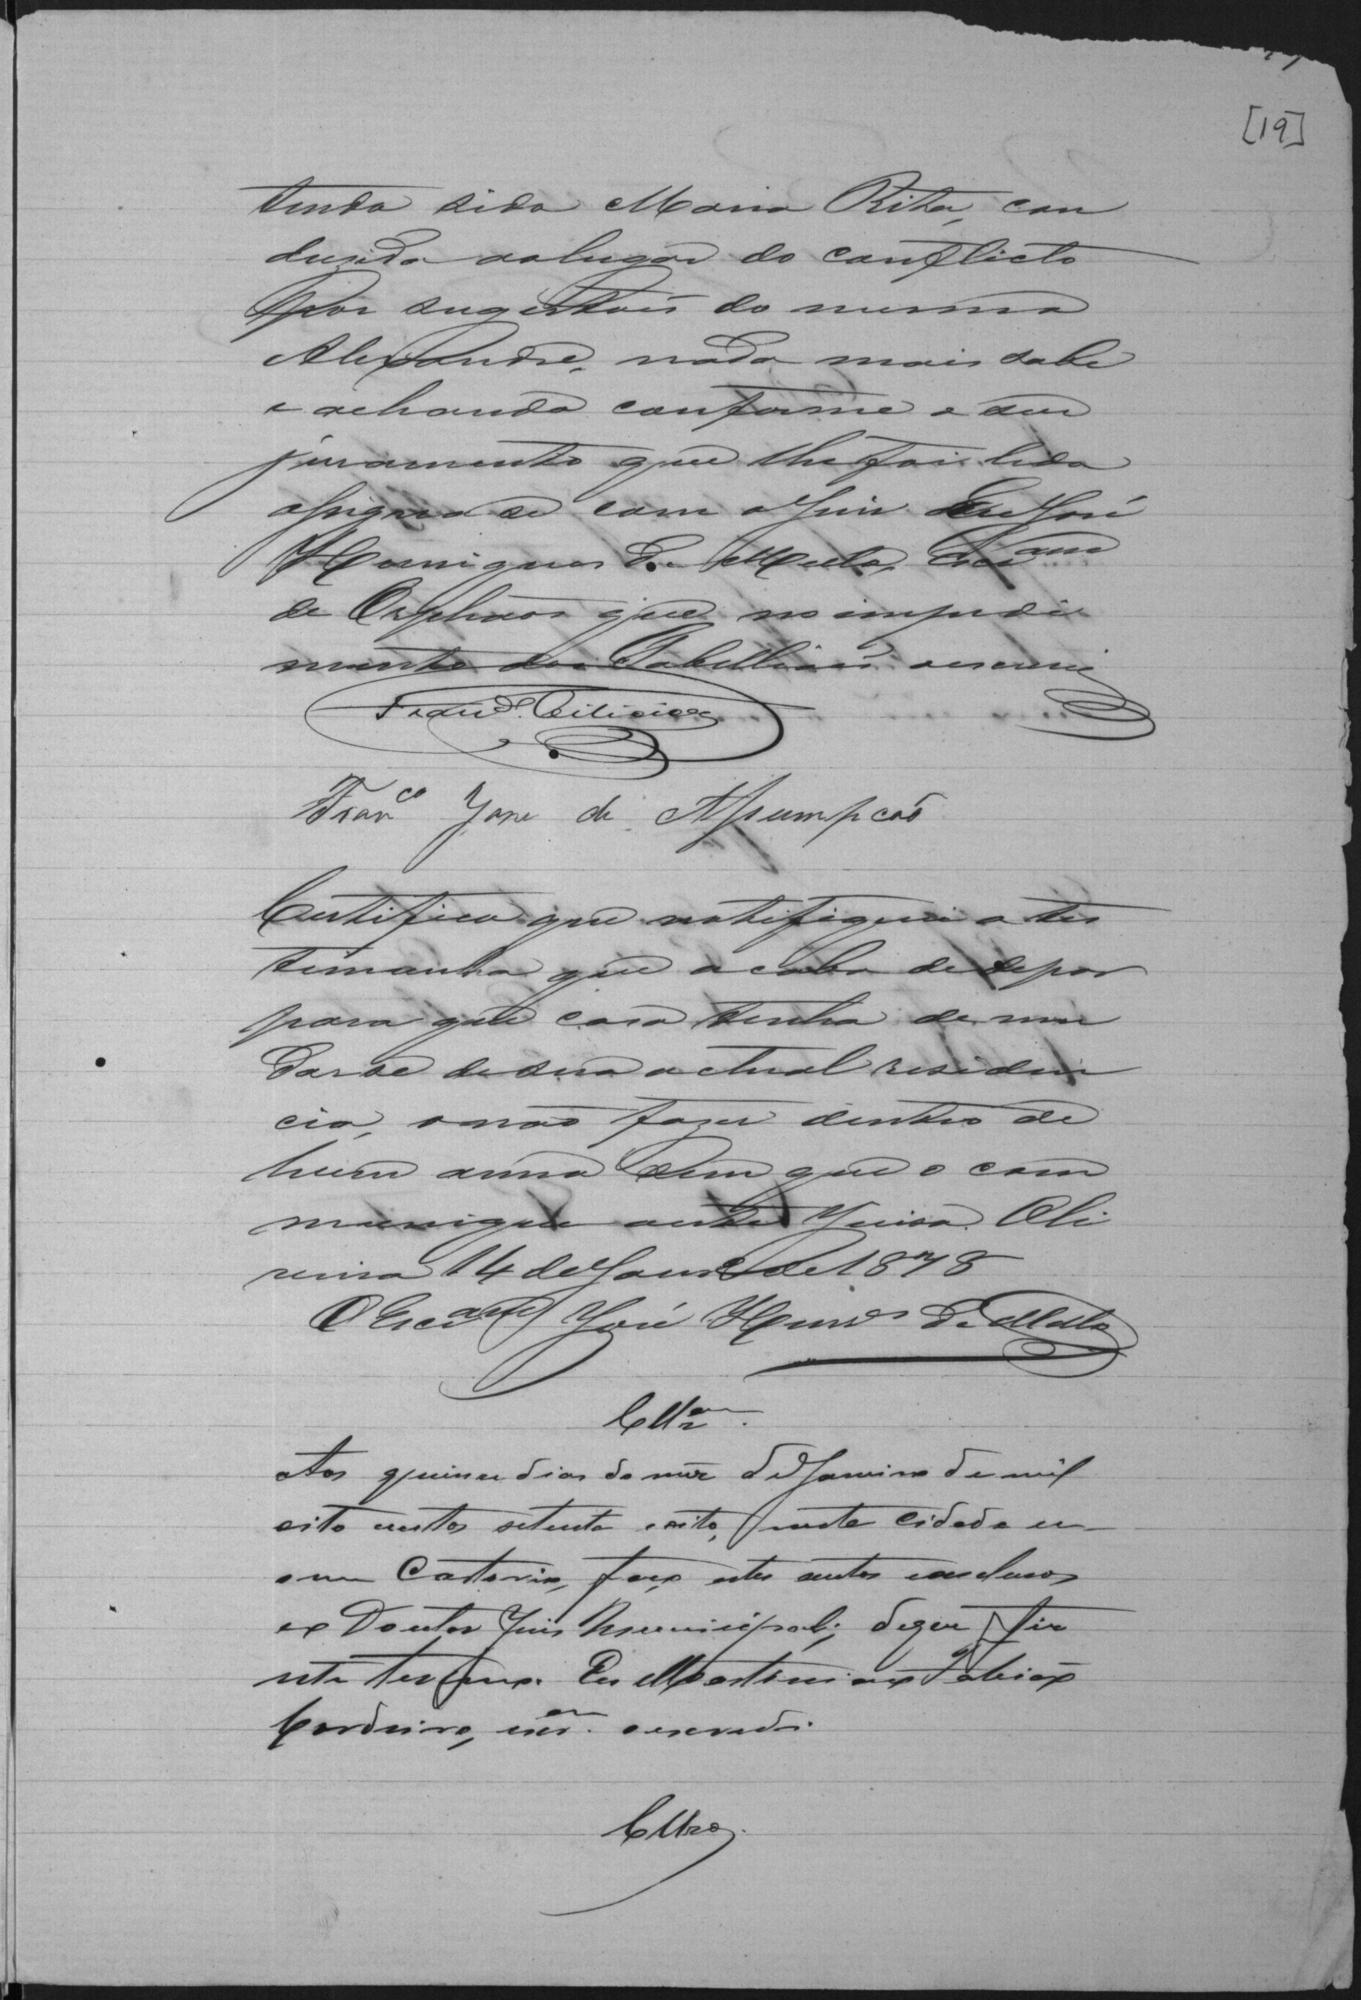 [19]
tendo sido Maria Rita, con
dusida ao lugar do conflicto
por sugestões do mesmo
Alexandre, nada mais sabe
e achando conforme o seu
juramento que lhe foi lido
assigna se com o Juiz. Eu José
Henriques de Mello, Escr.am
de Orphãos que no impedi
mento dos Tabelliães o escrevi
Franco José de Assumpção
Certifico que notifiquei a tes
timunha que acaba de depor
para que caso tenha de mu
darse de sua actual residen
cia, o não fazer dentro de
hum anno sem que o com
munique a este Juiso. Oli
veira 14 de Janro de 1878
O Escram José Henrs de Mello
Cllzam.
Aos quinze dias do mez de Janeiro de mil
oito centos setenta e oito, nesta Cidade em
o meu Cartorio, faço estes autos conclusos
ao Doutor Juiz Municipal; do que fiz
este termo. Eu Martiniano
Cordeiro, escram. o escrevi.
Cllzos.